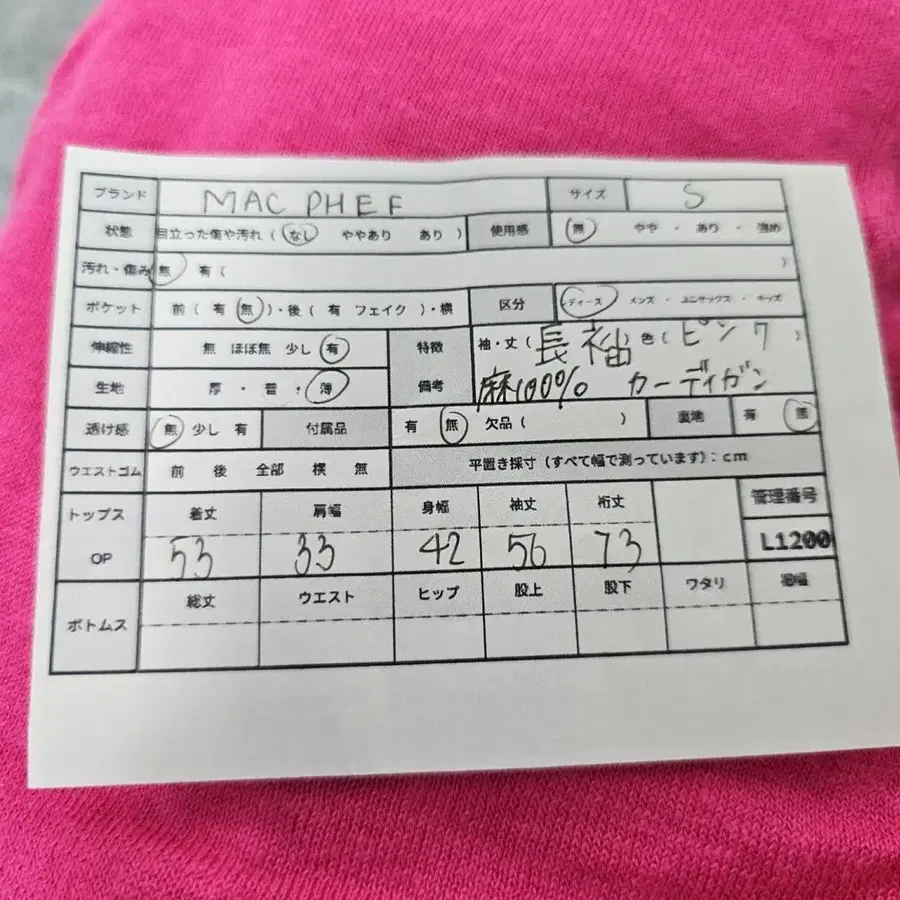 ブランド MAC PHEE サイズ S
状態 目立った傷や汚れ ( なし ややあり あり ) 使用感 無 やや ・ あり ・ 強め
汚れ・傷み 無 有 ( )
ポケット 前 ( 有 無 )・後 ( 有 フェイク )・横 区分 レディース メンズ ・ ユニセックス ・ キッズ
伸縮性 無 ほぼ無 少し 有 特徴 袖・丈 ( 長袖 ) 色 ( ピンク )
生地 厚 ・ 普 ・ 薄 備考 麻100% カーディガン
透け感 無 少し 有 付属品 有 無 欠品 ( ) 裏地 有 無
ウエストゴム 前 後 全部 横 無 平置き採寸 (すべて幅で測っています) : cm
トップス 着丈 肩幅 身幅 袖丈 裄丈 管理番号
OP 53 33 42 56 73 L1200
ボトムス 総丈 ウエスト ヒップ 股上 股下 ワタリ 裾幅